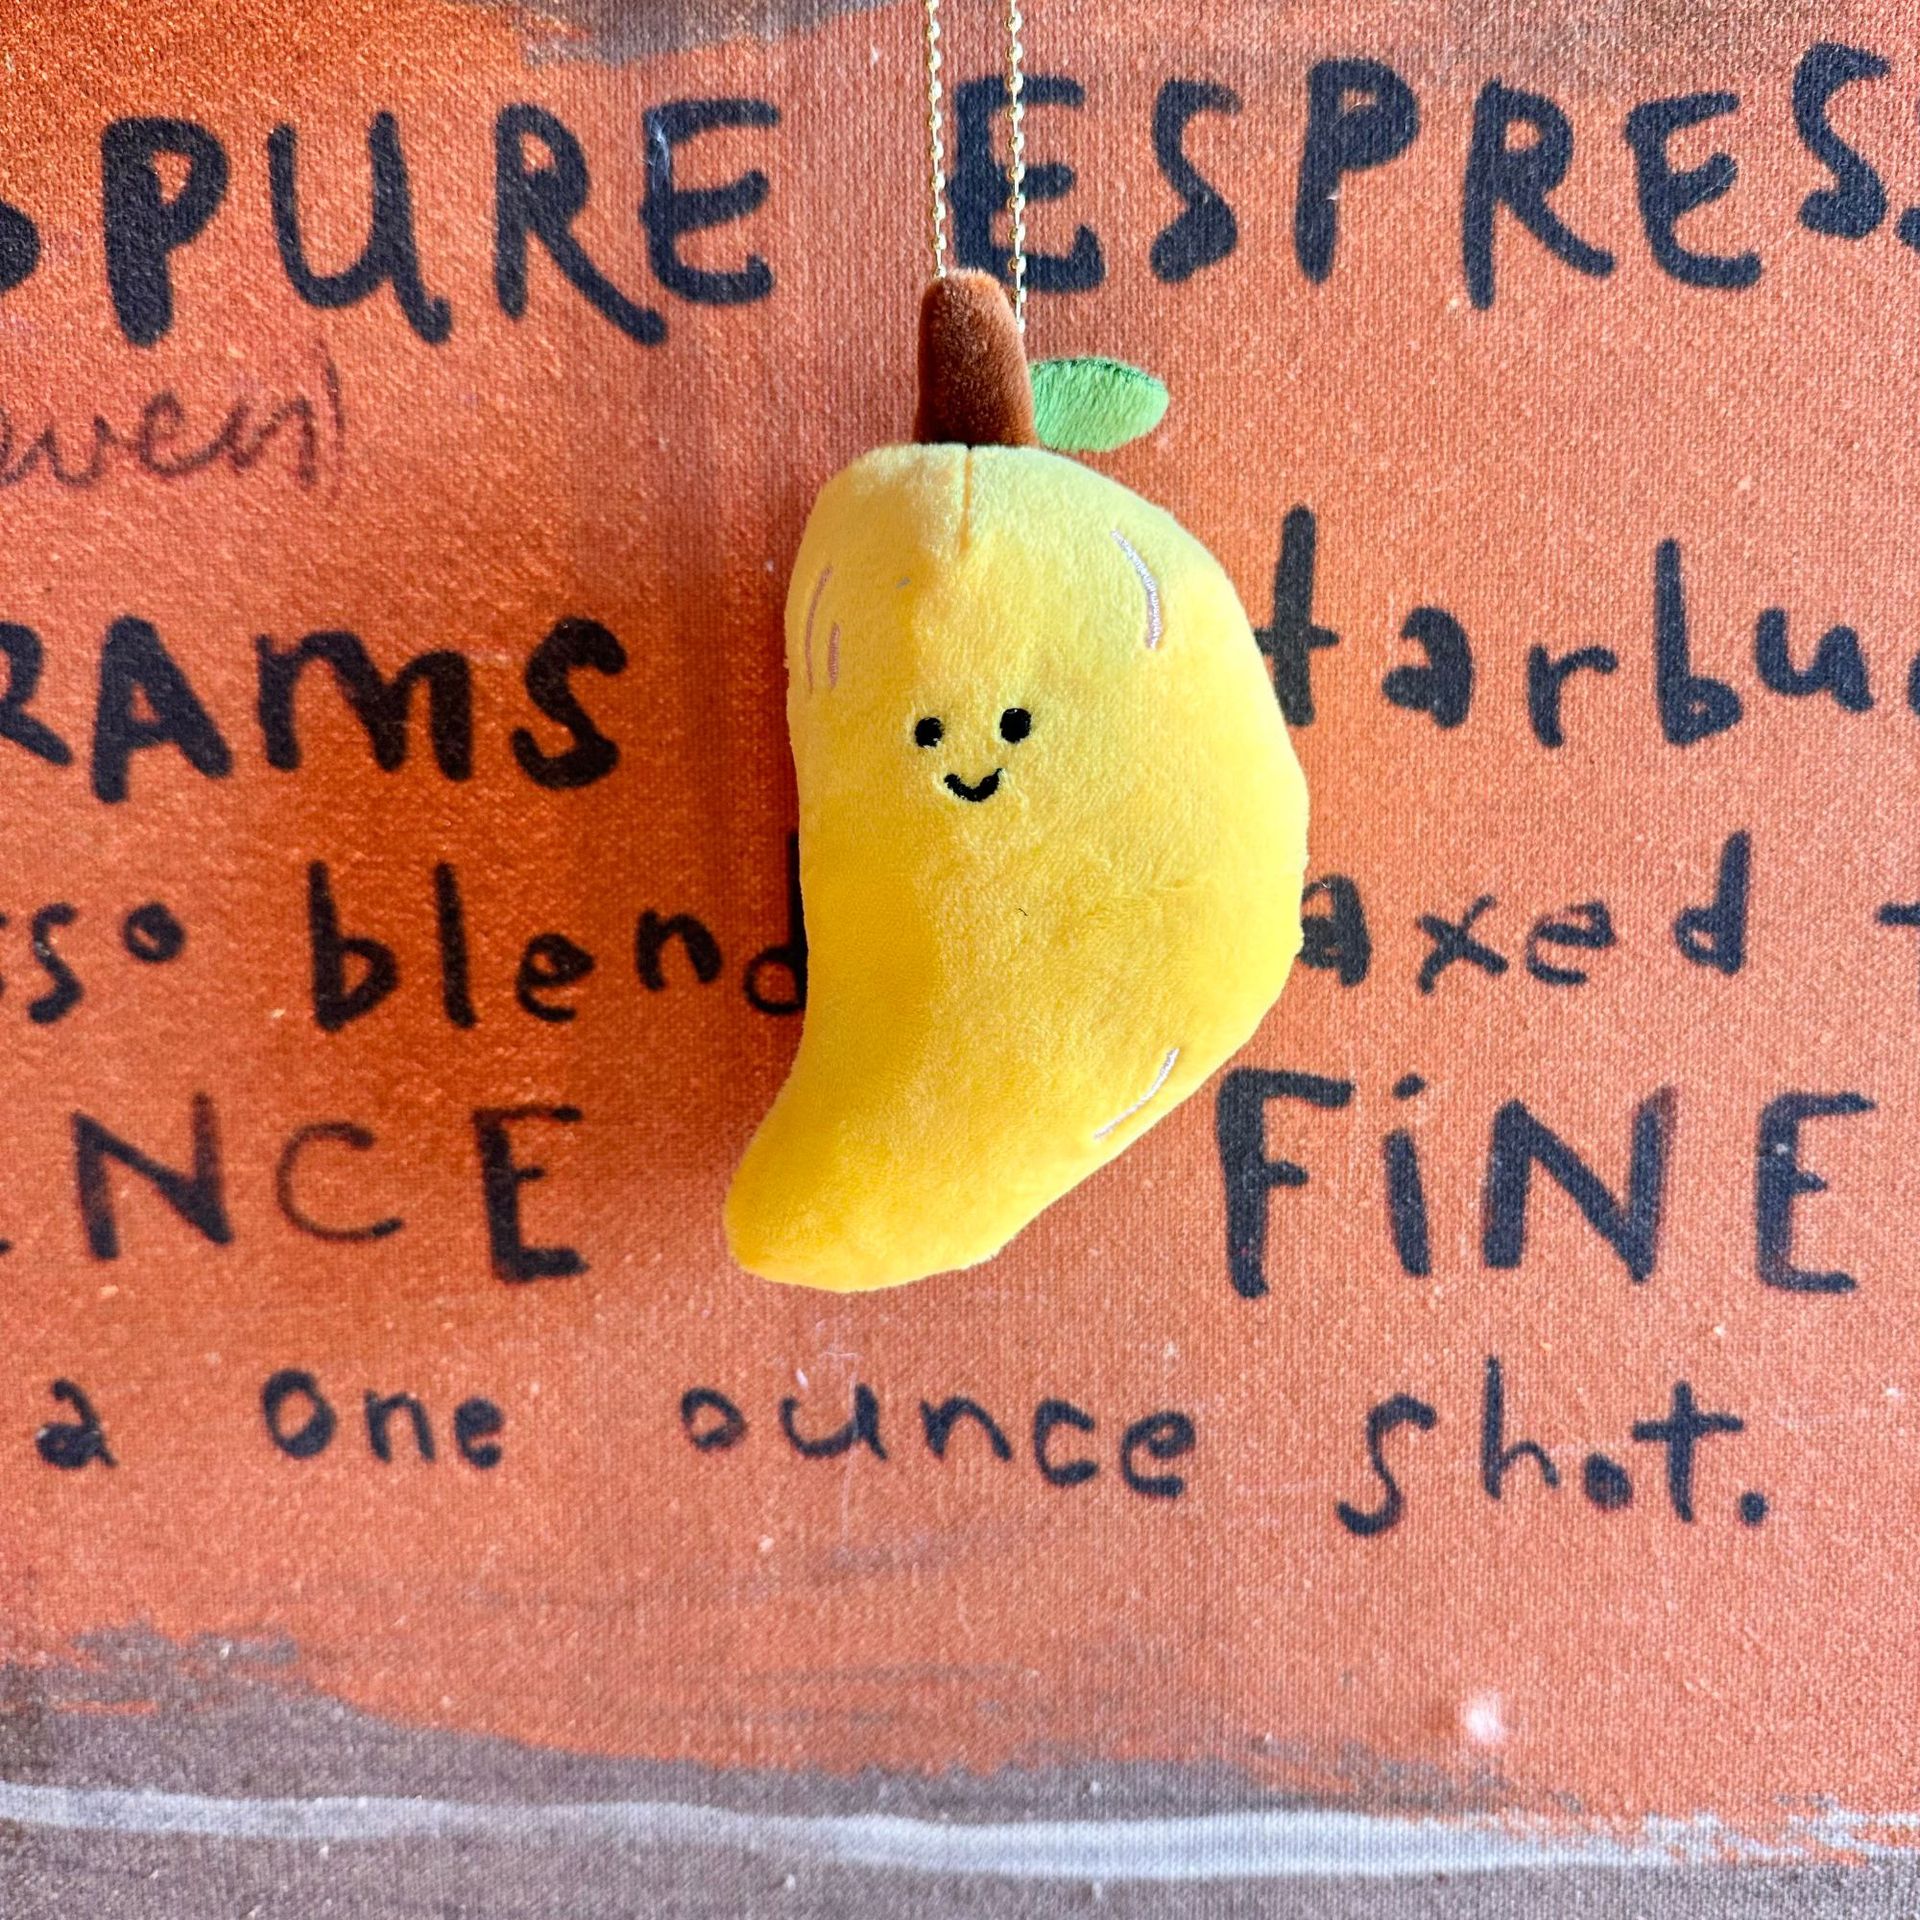 PURE ESPRES
RAMS tarbu
sso blend axed
NCE FiNE
a one ounce shot.